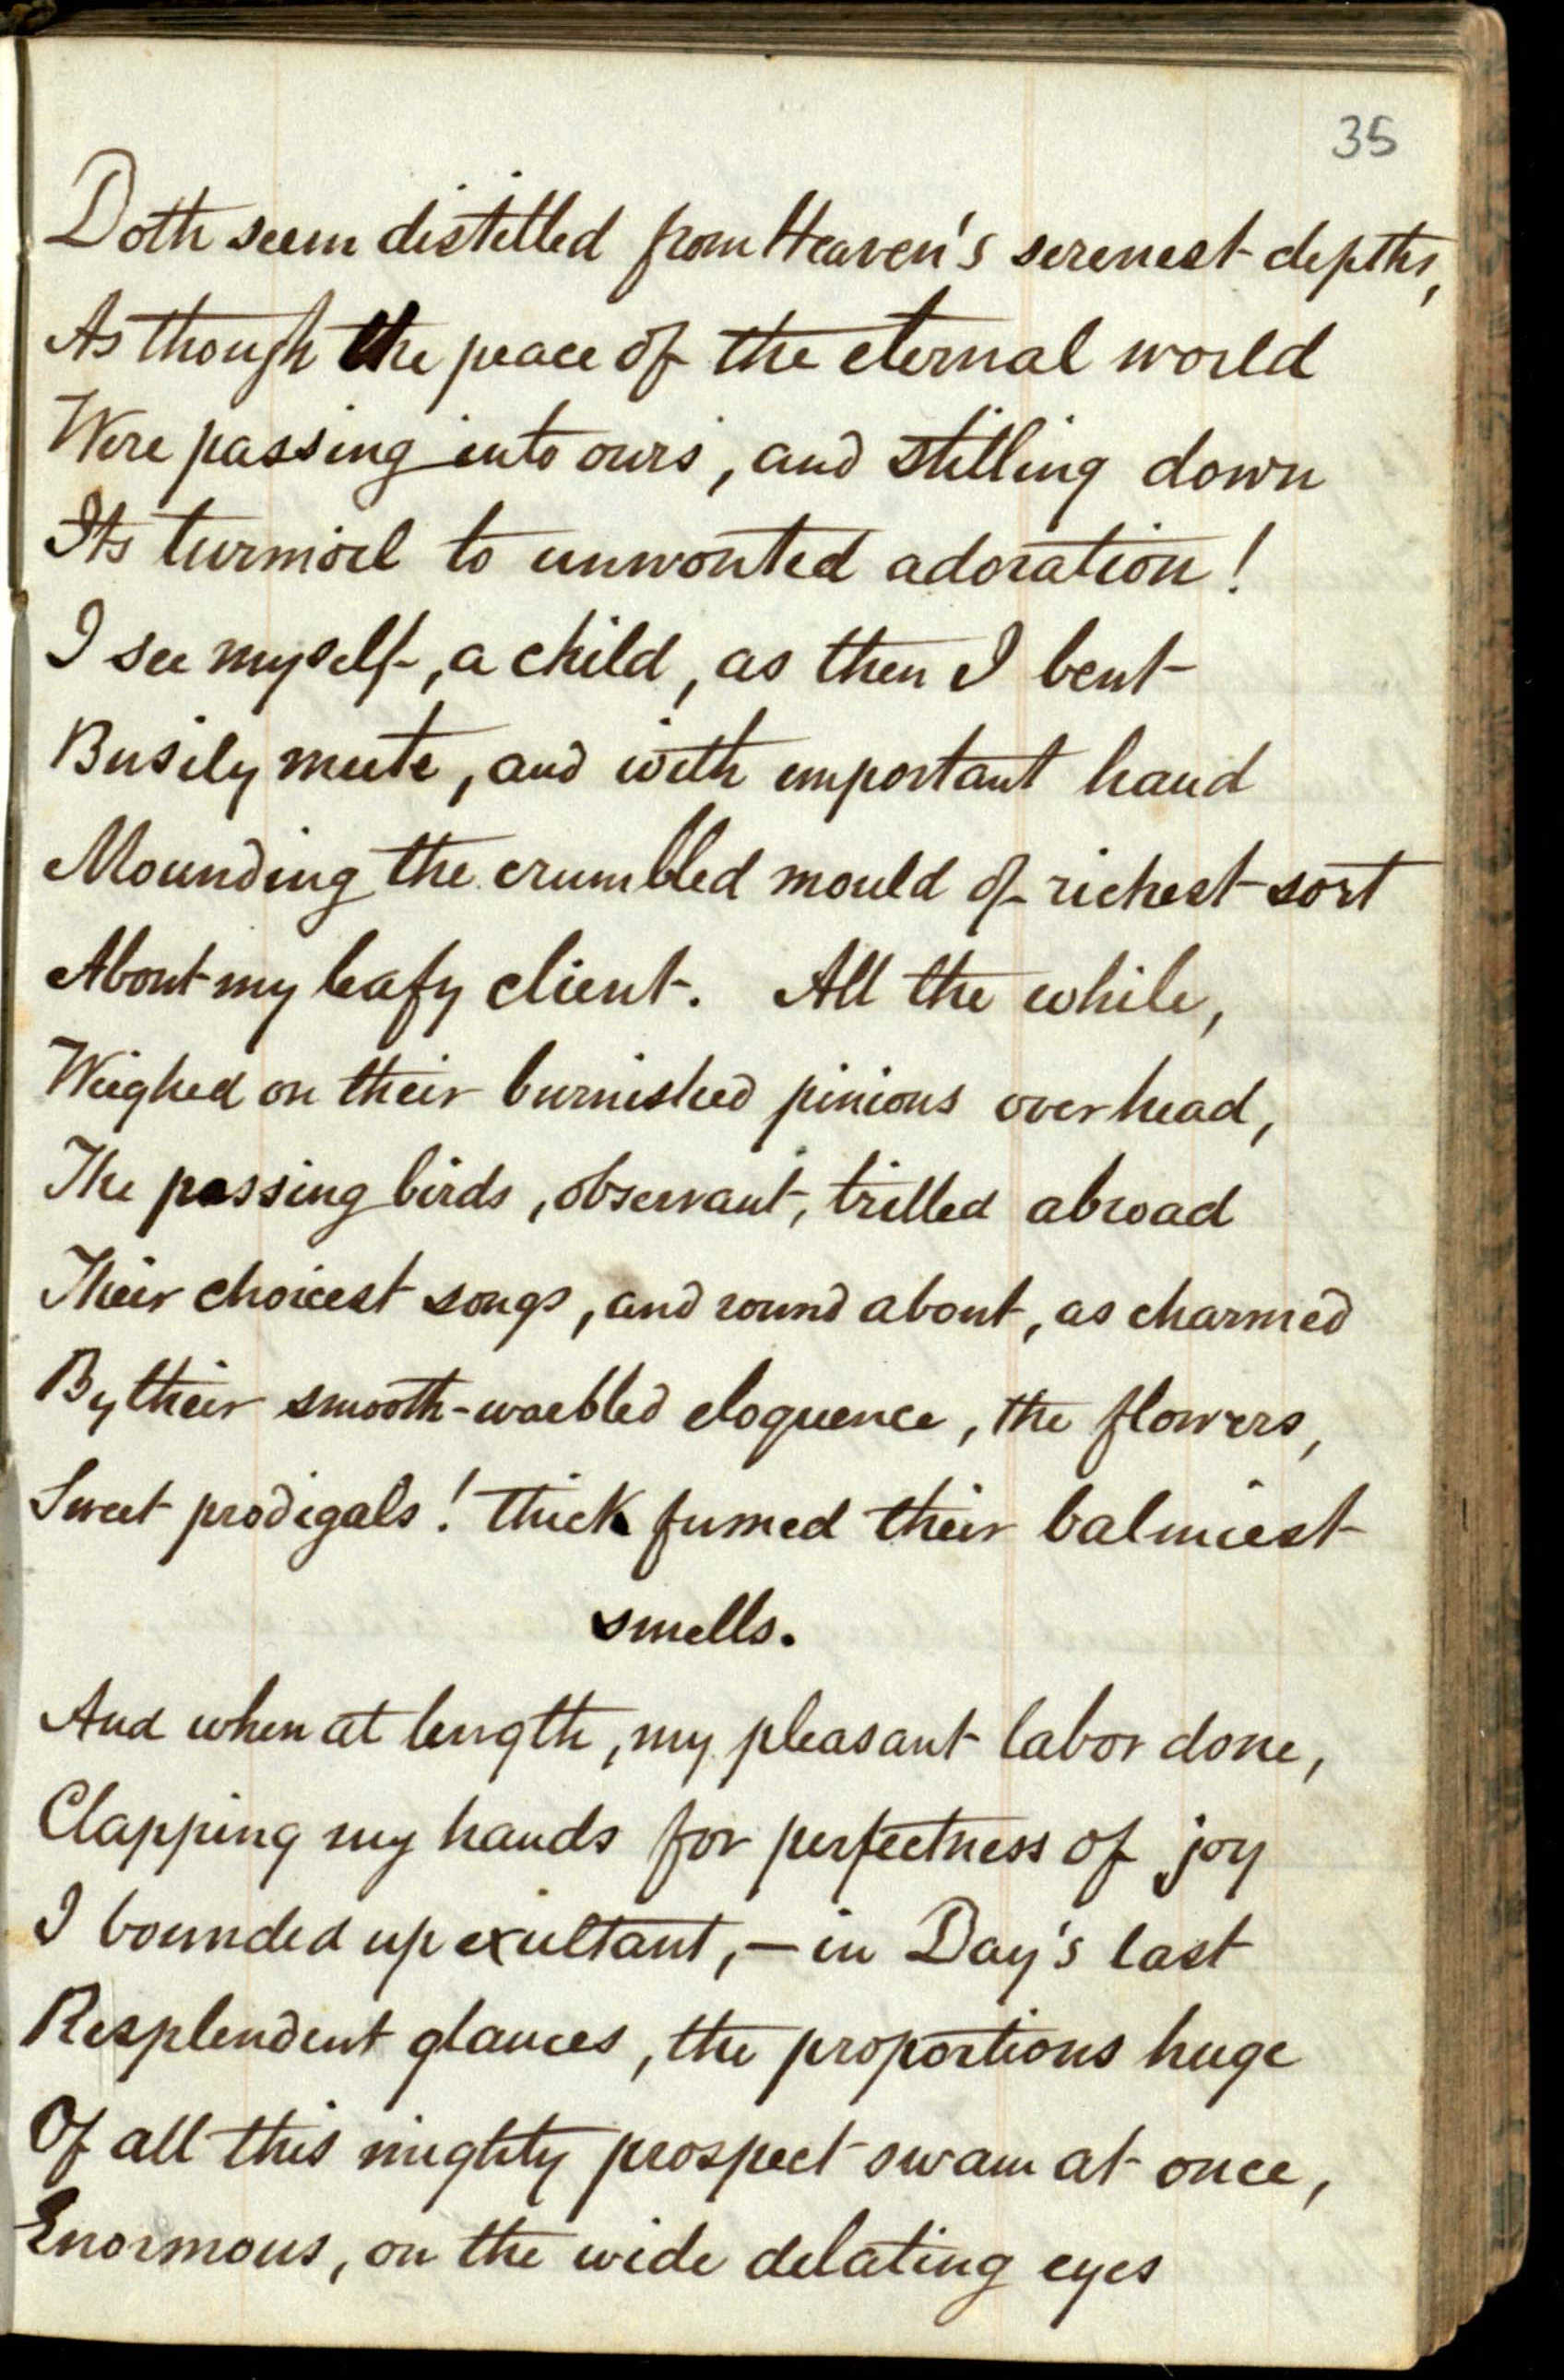 35
Doth seem distilled from Heaven's serenest depths,
As though the peace of the eternal world
Were passing into ours, and stilling down
Its turmoil to unwonted adoration!
I see myself, a child, as then I bent
Busily mute, and with important hand
Mounding the crumbled mould of richest sort
About my leafy client. All the while,
Weighed on their burnished pinions overhead,
The passing birds, observant, trilled abroad
Their choicest songs, and round about, as charmed
By their smooth-warbled eloquence, the flowers,
Sweet prodigals! thick fumed their balmiest
smells.
And when at length, my pleasant labor done,
Clapping my hands for perfectness of joy
I bounded up exultant,—in Day's last
Resplendent glances, the proportions huge
Of all this mighty prospect swam at once,
Enormous, on the wide dilating eyes